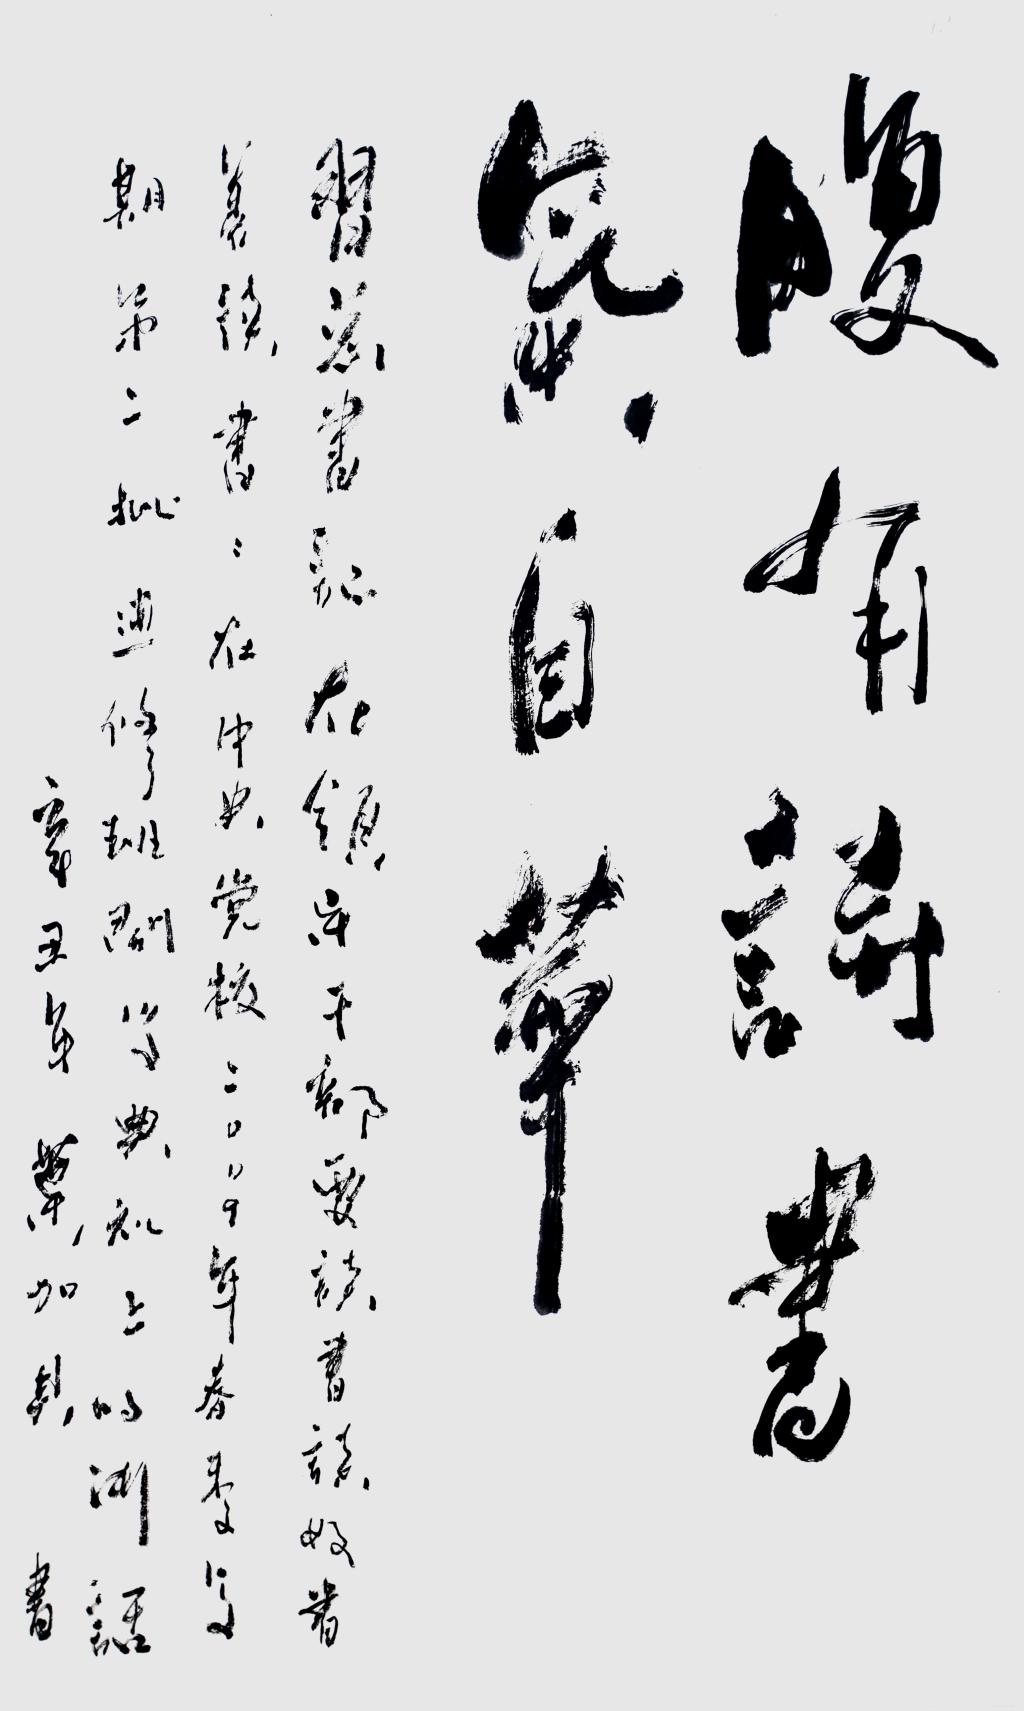 腹有詩書
氣自華
習总書記在領导干部要讀書讀好書
善讀書：在中央党校二〇〇九年春季学
期第二批進修班開学典礼上的講話
辛丑年葉加書